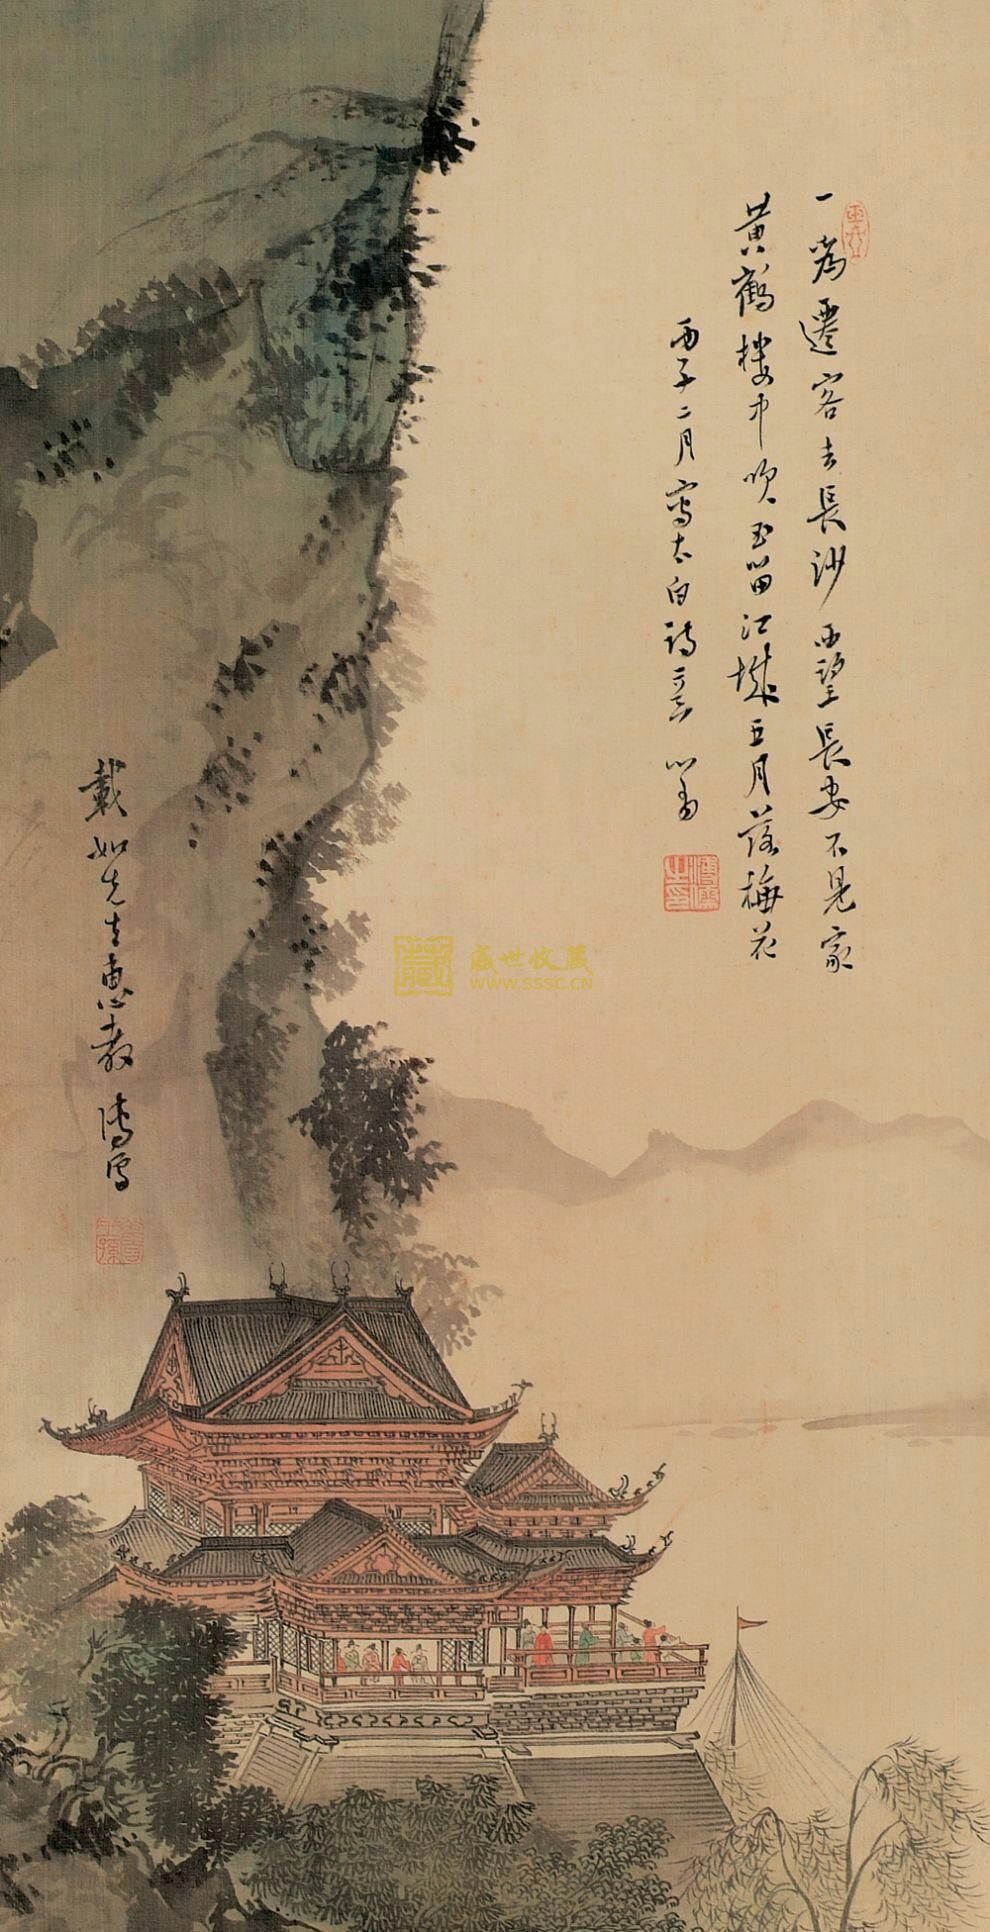 一為遷客去長沙西望長安不見家
黃鶴樓中吹玉笛江城五月落梅花
丙子二月寫太白詩意 心畬
溥儒之印
載如先生惠教 溥儒
舊王孫
盛世收藏
WWW.SSSC.CN